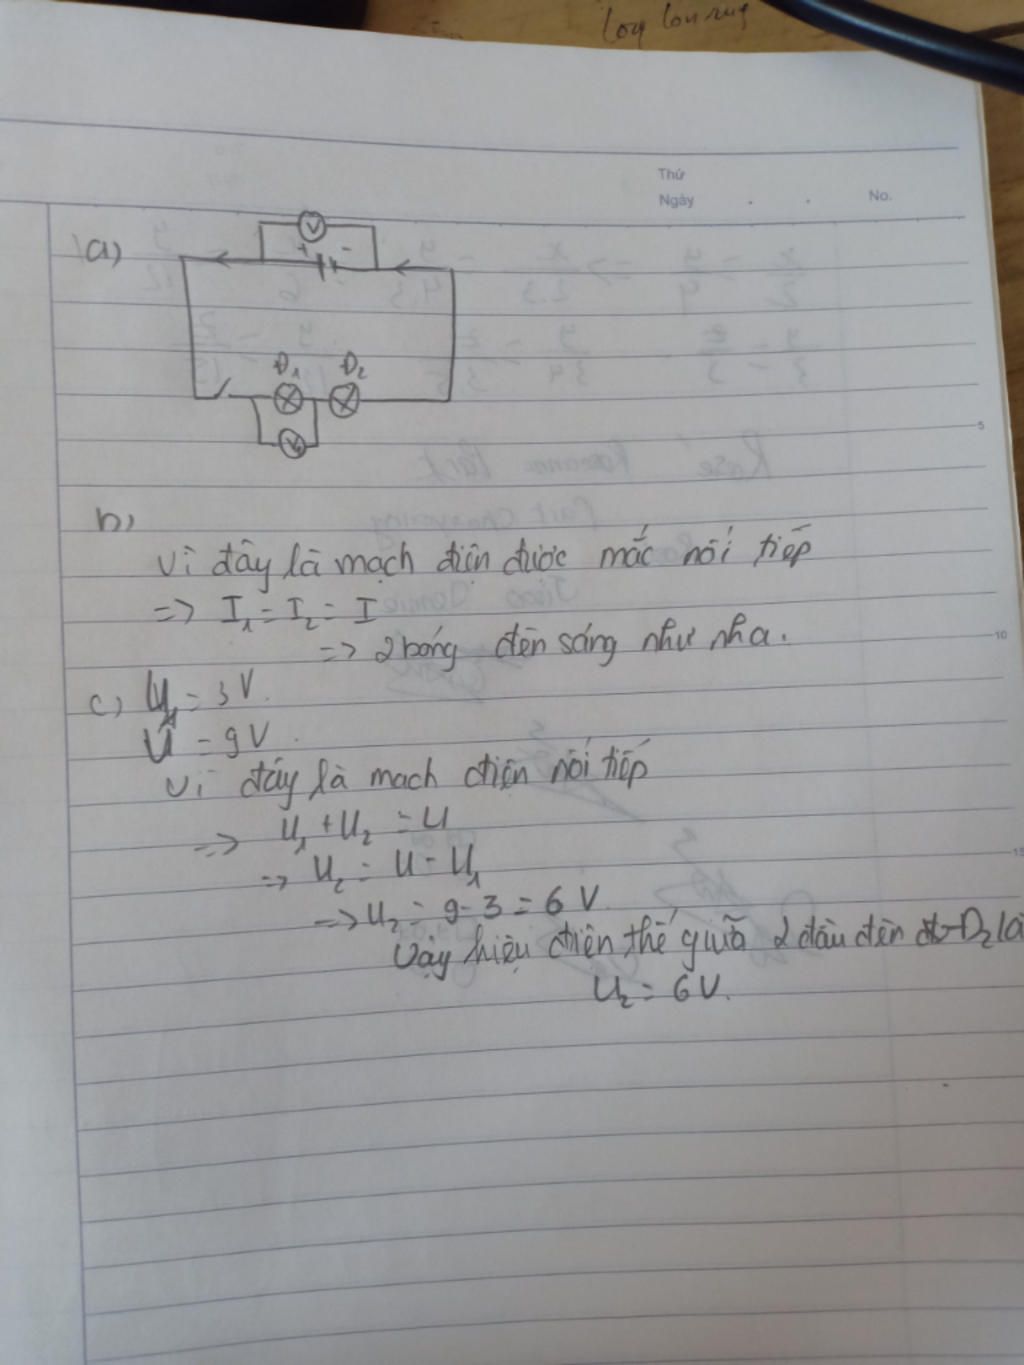 Thứ
Ngày . . No.
1a)
V
+ -
Đ1 Đ2
V1
5
b,
Vì đây là mạch điện được mắc nối tiếp
=> I1 = I2 = I
=> 2 bóng đèn sáng như nha.
10
c, U1 = 3V.
U = 9V.
Vì đây là mạch điện nối tiếp
=> U1 + U2 = U
=> U2 = U - U1
15
=> U2 = 9 - 3 = 6 V
Vậy hiệu điện thế giữa 2 đầu đèn Đ2 là
U2 = 6V.